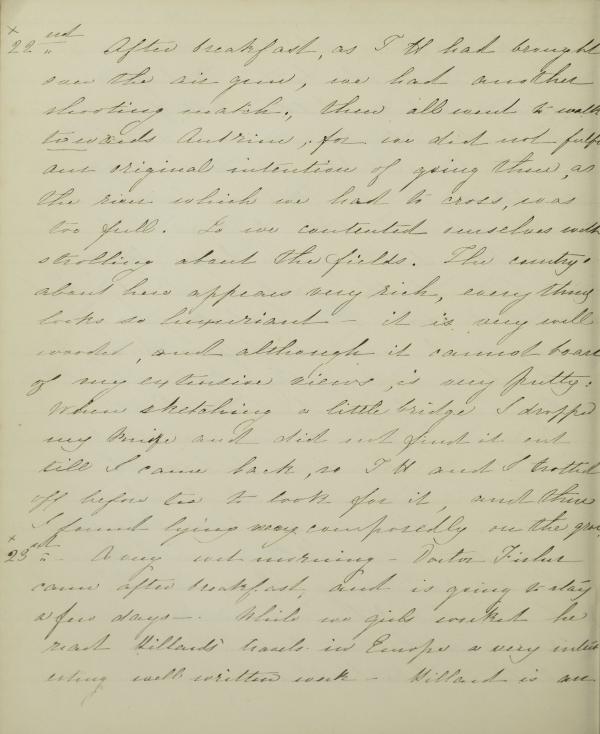 22nd After breakfast, as T H had brought
over the air gun, we had another
shooting match, then all went to walk
towards Antrim, for we did not fulfil
our original intention of going there, as
the river which we had to cross, was
too full. So we contented ourselves with
strolling about the fields. The country
about here appears very rich, everything
looks so luxuriant - it is very well
wooded, and although it cannot boast
of any extensive views, is very pretty.
When sketching a little bridge I dropped
my knife and did not find it out
till I came back, so T H and I trotted
off before tea to look for it, and there
I found lying very composedly on the grou
23rd - A very wet morning - Doctor Fisher
came after breakfast, and is going to stay
a few days -. While we girls worked he
read Hillard's travels in Europe a very inter
esting well written work - Hillard is an